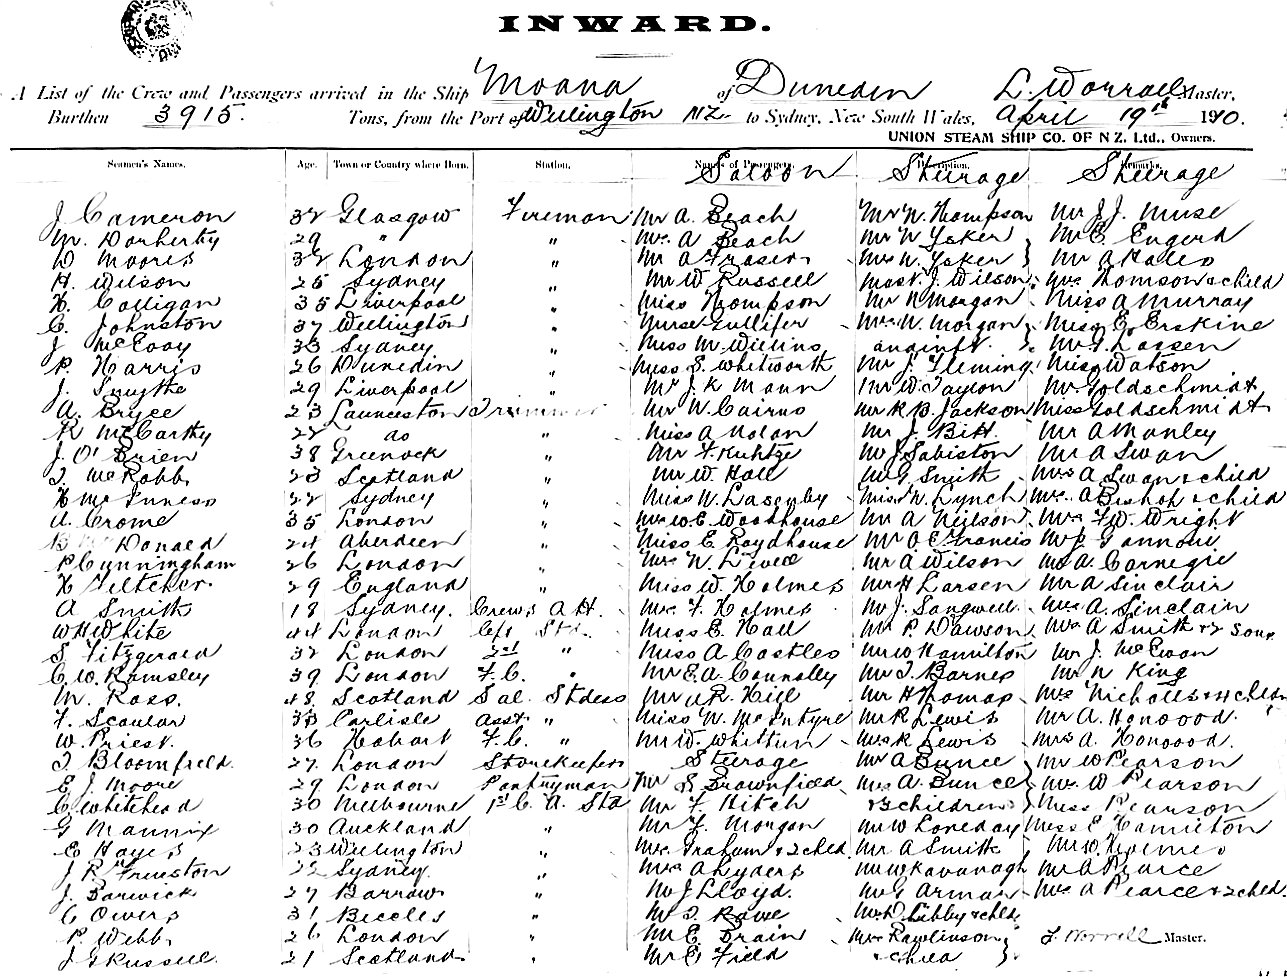 INWARD.
A List of the Crew and Passengers arrived in the Ship Moana of Dunedin L. Worrall Master,
Burthen 3915. Tons, from the Port of Wellington NZ to Sydney, New South Wales, April 19th 1910.
UNION STEAM SHIP CO. OF N Z. Ltd., Owners.
Seamen's Names. Age. Town or Country where Born. Station. Names of Passengers. Description. Remarks.
Saloon Steerage Steerage
J Cameron 32 Glasgow Fireman Mr A. Beach Mr N. Thompson Mr J. J. Muse
M. Dorherty 29 " " Mrs A Beach Mr N Yoker Mr E. Engerd
W Moores 32 London Mr A Fraser Mrs N. Yoker } Mr A Hales
H. Wilson 25 Sydney " Mr W Russell Mast. J. Wilson Mrs Thomson & child
H. Colligan 35 Liverpool " Miss Thompson Mr N Morgan Miss A Murray
C. Johnston 37 Wellington " Nurse Gullifer Mrs N. Morgan Miss E. Erskine
J McEvoy 33 Sydney " Miss M. Wilkins and inft. } Lassen
P. Harris 26 Dunedin " Miss S. Whitworth Mr J. Fleming Miss Watson
J. Smythe 29 Liverpool " Mr J. K Mann Mr W. Taylor Mr Goldschmidt
A. Bryce 23 Launceston Trimmer Mr W. Cairns Mr R B. Jackson Miss Goldschmidt
R McCarthy 22 do " Miss A Nolan Mr J. Bitt. Mr A Manley
J. O'Brien 38 Greenock " Mr F. Kuhtze Mr J Sabiston Mr A Swan
T McRobb 23 Scotland " Mr W. Hall Mr G Smith Mrs A Swan & child
H McInness 22 Sydney " Miss W. Lasenby Miss N. Lynch Mrs A Bishop & child
A. Crome 35 London " Mrs W E Woodhouse Mr A Neilson Mrs F. W. Wright
B McDonald 24 Aberdeen " Miss E Roydhouse Mr O. E Francis Gannon
P Cunningham 26 London " Mrs N. Mr A Wilson A. Carnegie
H Feltcher. 29 England " Miss W. Holmes Mr H Larsen Mr A Sinclair
A Smith 18 Sydney. Crews A H. Mrs F. Holmes Mr J. Sangwell Mrs A. Sinclair
W H White 44 London Std. Miss E. Hall Mr P. Dawson Mrs A Smith & 2 sons
S Fitzgerald 32 London 2nd " Miss A Castles Mr W Hamilton Mr J. McEwan
C W. Ramsley 39 London F. C. " Mr E. A. Connolly Mr T. Barnes Mr N King
M. Ross. 48 Scotland Sal. Stdess Mr R. Hill Mr H Thomas Mrs Nicholls & 4 chldn
F. Scoular 33 Carlisle Asst. " Miss N. McIntyre Mr R Lewis Mr A. Honoood.
W. Priest. 36 Hobart F. C. " Mr W. Whittun Mrs R Lewis Mrs A. Honoood.
T Bloomfield. 27 London Storekeeper Steerage Mr A Bunce Mr W Pearson
E J. Moore 29 London Pantryman Mr S Brownfield Mrs A. Bunce Mrs W Pearson
C Whitehead 30 Melbourne 1st C. A. Std Mr F Hitch & 3 children } Miss Pearson
G Mannix 30 Auckland " Mr F. Morgan Mr W Loveday Miss E Hamilton
E Hayes 23 Wellington " Mrs Graham & 2 chld. Mr A Smith Holmes
J. R. Fruiston 22 Sydney. " Mrs A Lyders Mr W Kavanagh Mr A Pearce
J. Barwick 27 Barrow " Mr J Lloyd. Mr G Armar Mrs A Pearce & 2 chld.
C Owers 31 Beccles " Mr T. Rowe Mrs D Libby & chld
P. Webb 26 London " Mr E. Brain Mrs Rawlinson } L. Worrall Master.
J G Russell. 21 Scotland " Mr E Field & child